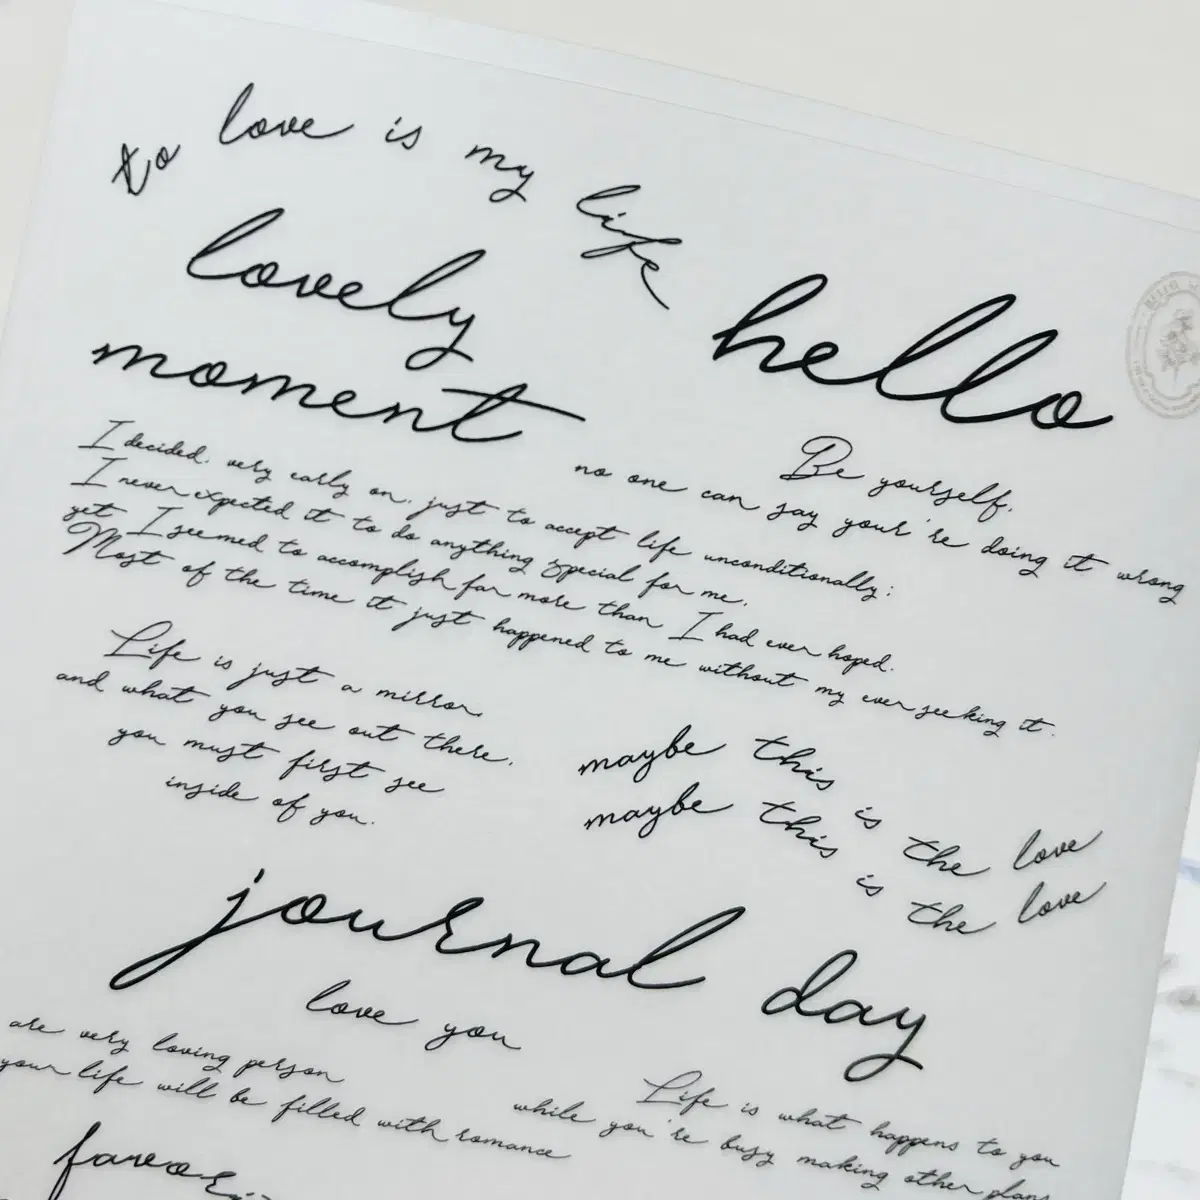 to love is my life
lovely
moment
hello
Be yourself.
no one can say your're doing it wrong
I decided, very early on, just to accept life unconditionally;
I never expected it to do anything special for me,
yet I seemed to accomplish far more than I had ever hoped.
Most of the time it just happened to me without my ever seeking it.
Life is just a mirror,
and what you see out there,
you must first see
inside of you.
maybe this is the love
maybe this is the love
journal day
love you
are very loving person
your life will be filled with romance
Life is what happens to you
while you're busy making other plans